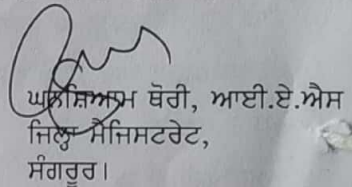 ਘਨਸ਼ਿਆਮ ਥੋਰੀ, ਆਈ.ਏ.ਐਸ
ਜਿਲ੍ਹਾ ਮੈਜਿਸਟਰੇਟ,
ਸੰਗਰੂਰ।